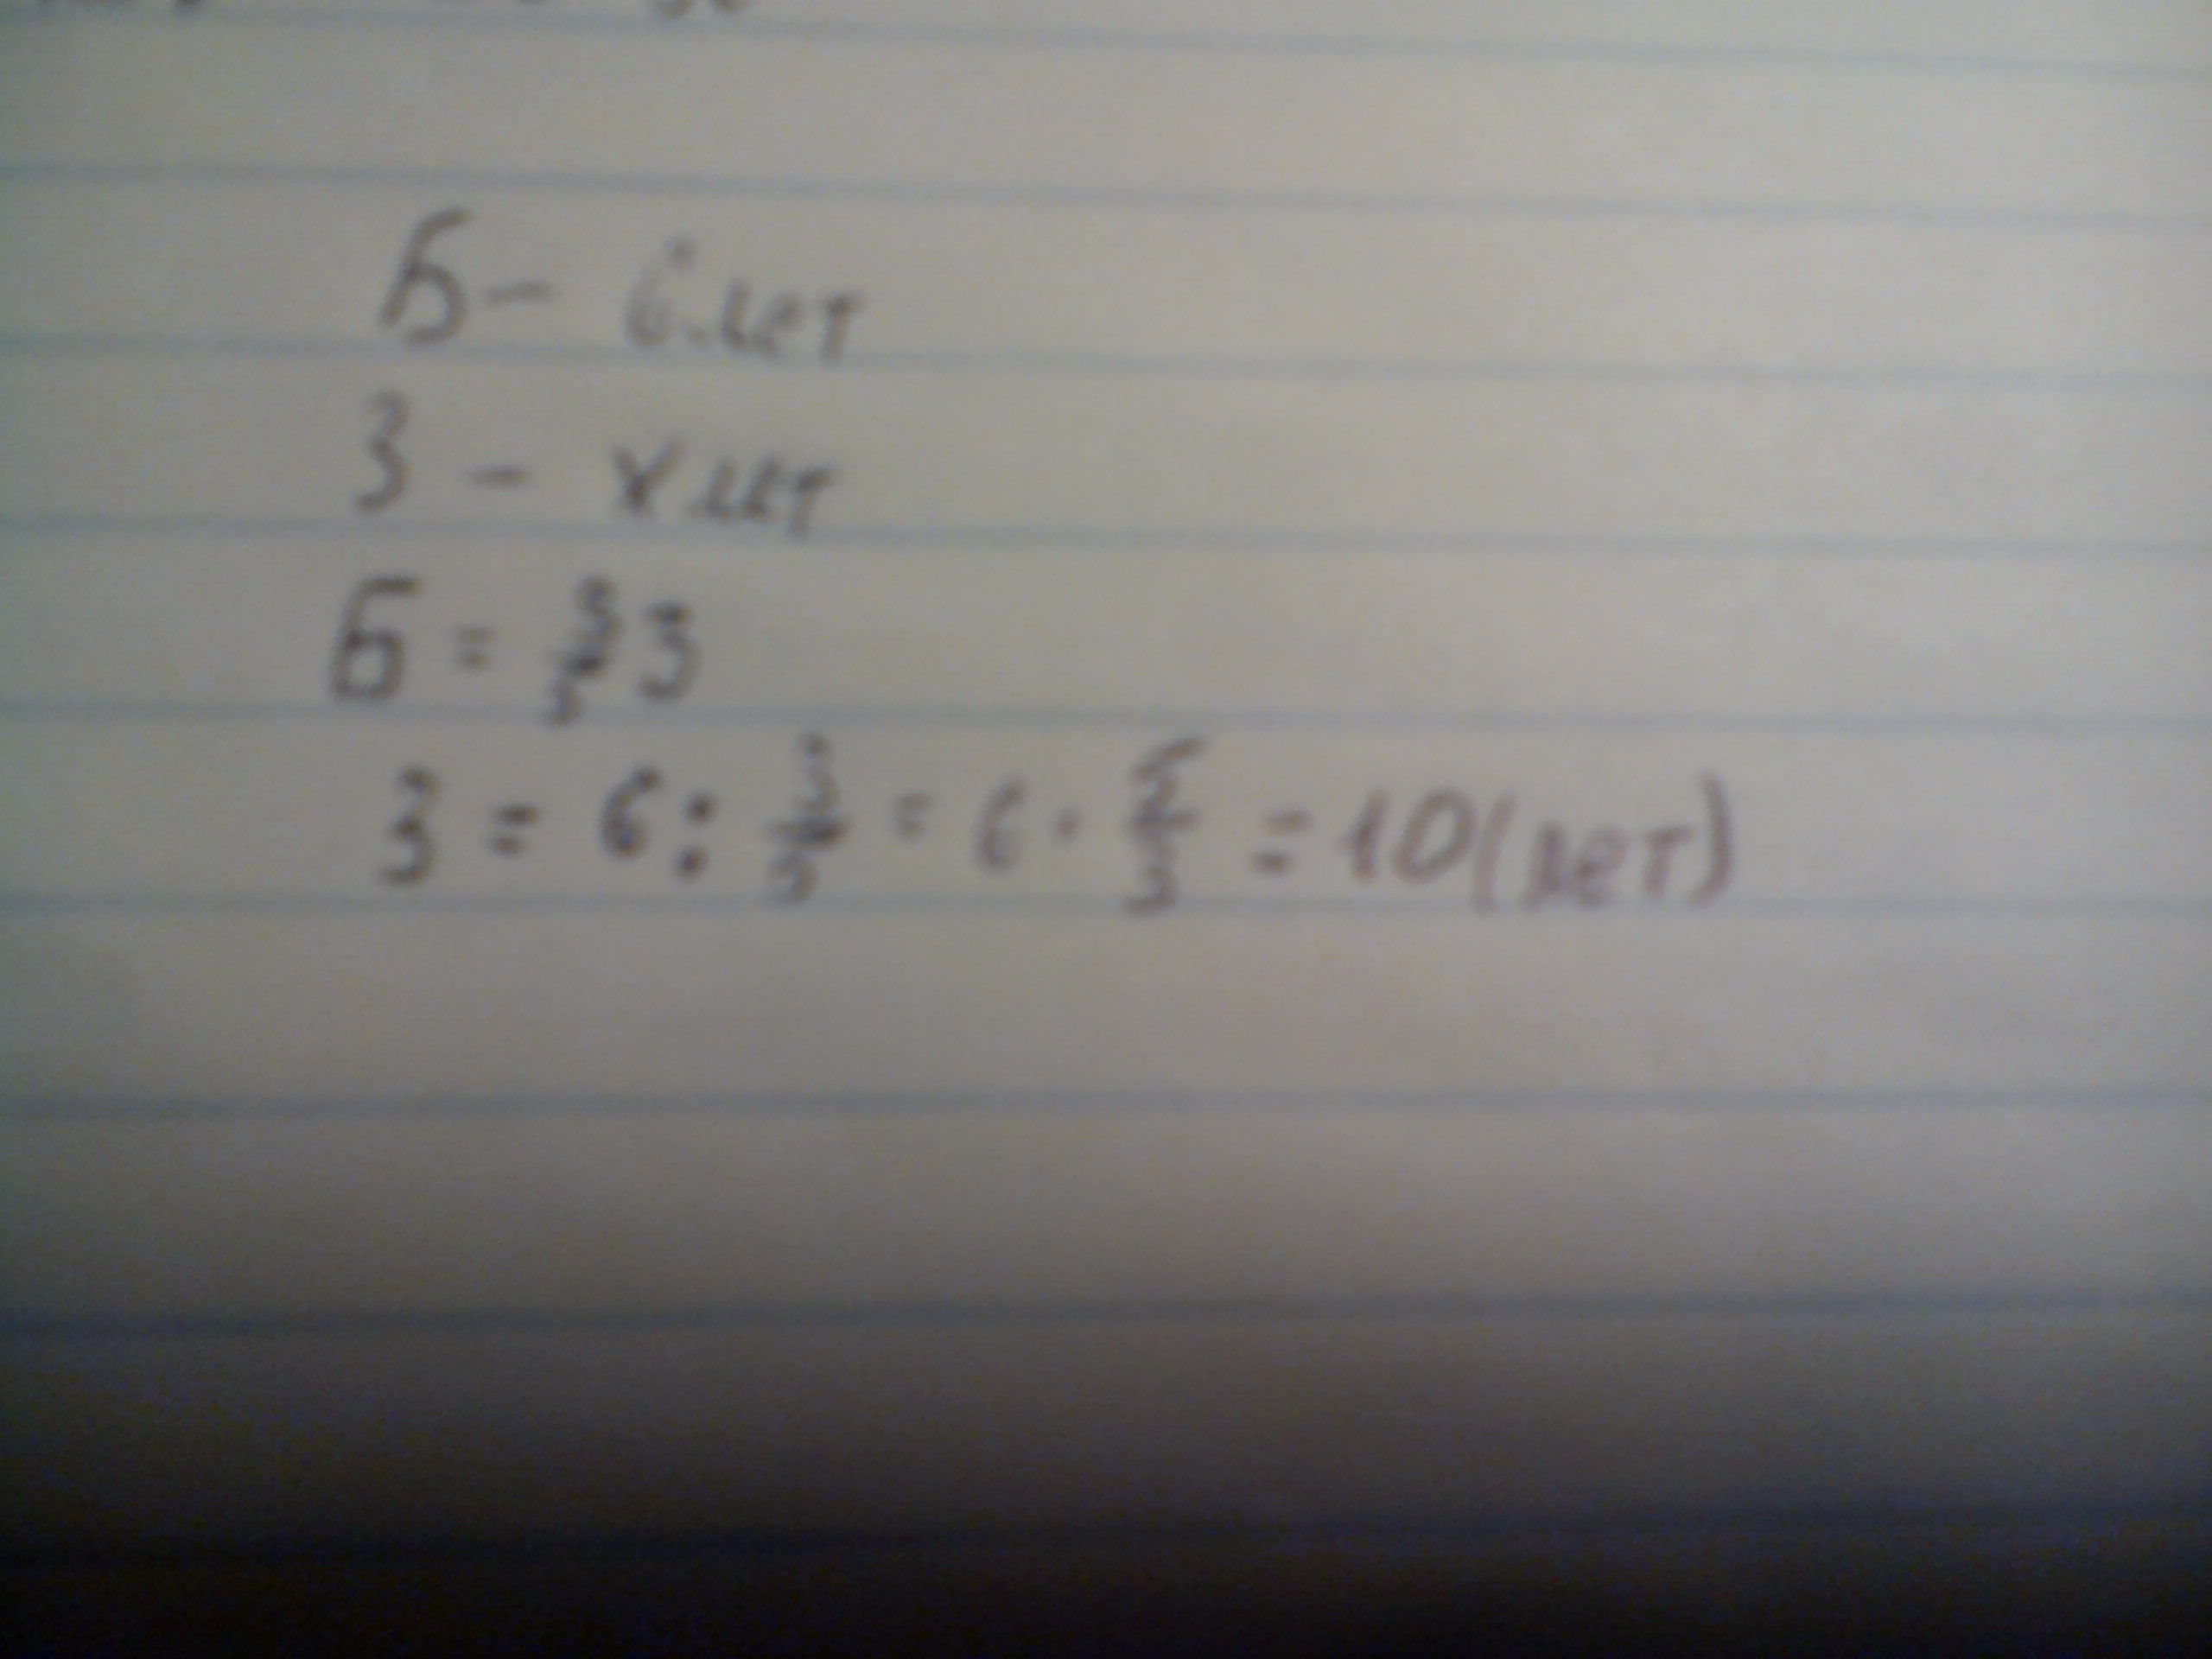 Б - 6 лет
З - х лет
Б = 3/5 З
З = 6 : 3/5 = 6 · 5/3 = 10 (лет)